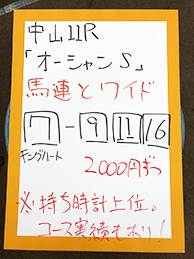 中山11R
「オーシャンS」
馬連とワイド
7-9 11 16
キングハート
2000円ずつ
※持ち時計上位。
コース実績もあり!